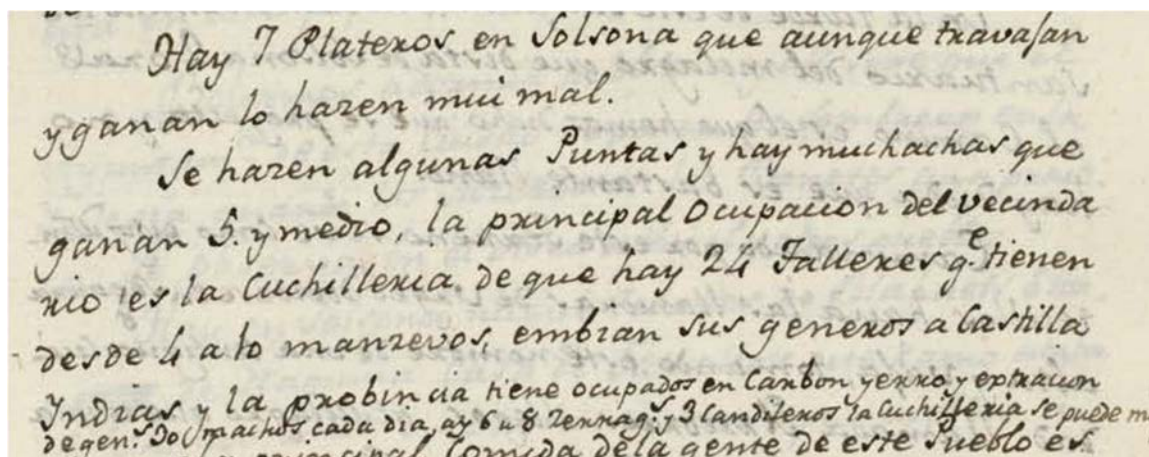 Hay 7 Plateros en Solsona que aunque travajan
y ganan lo hazen mui mal.
Se hazen algunas Puntas y hay muchachas que
ganan 5. y medio, la principal Ocupacion del vecinda
rio es la Cuchilleria de que hay 24 Talleres qe. tienen
desde 4 a 10 manzevos, embian sus generos a Castilla
Indias y la probincia tiene ocupados en Carbon yerro y extracion
de gens. 30 machos cada dia, ay 6 u 8 y 3 la Cuchilleria se puede
principal Comida de la gente de este Pueblo es